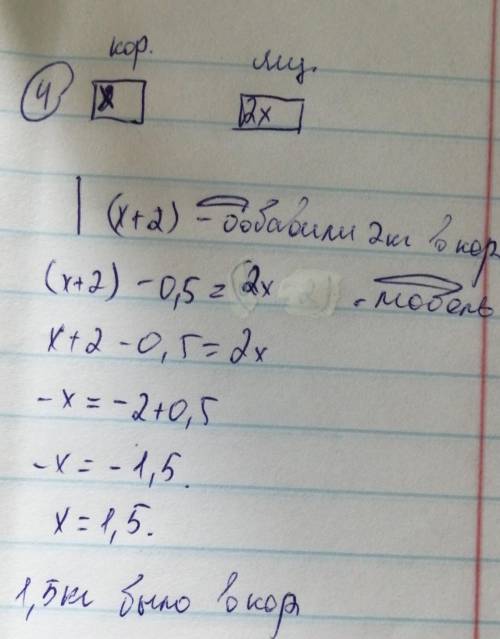 кор. ящ.
4 x 2x
(x+2) - добавили 2кг в кор
(x+2) - 0,5 = 2x - модель
x+2-0,5=2x
-x=-2+0,5
-x=-1,5.
x=1,5.
1,5кг было в кор